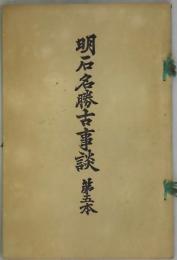 明石名勝古事談
第五本